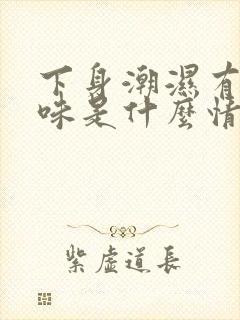 下身潮濕有
味是什麼情
紫虛道長